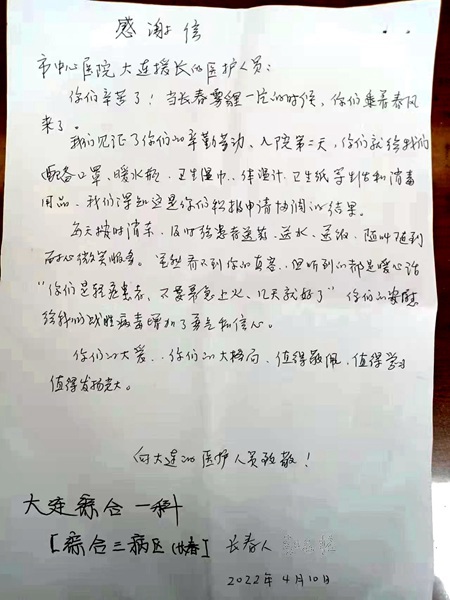 感谢信
市中心医院大连援长的医护人员：
你们辛苦了！当长春雾锂一片的时候，你们乘着春风
来了。
我们见证了你们的辛勤劳动、入院第二天，你们就给我们
配备口罩、暖水瓶、卫生湿巾、体温计、卫生纸等生活和消毒
用品，我们深知这是你们积极申请协调的结果。
每天按时消杀，及时给患者送药、送水、送饭，随叫随到
耐心微笑服务。虽然看不到你的真容，但听到的都是暖心话
“你们是轻症患者，不要着急上火、几天就好了”你们的安慰
给我们战胜病毒增加了勇气和信心。
你们的大爱、你们的大格局，值得敬佩，值得学习
值得发扬光大。
向大连的医护人员致敬！
大连综合一科
[综合三病区
长春人
2022年4月10日